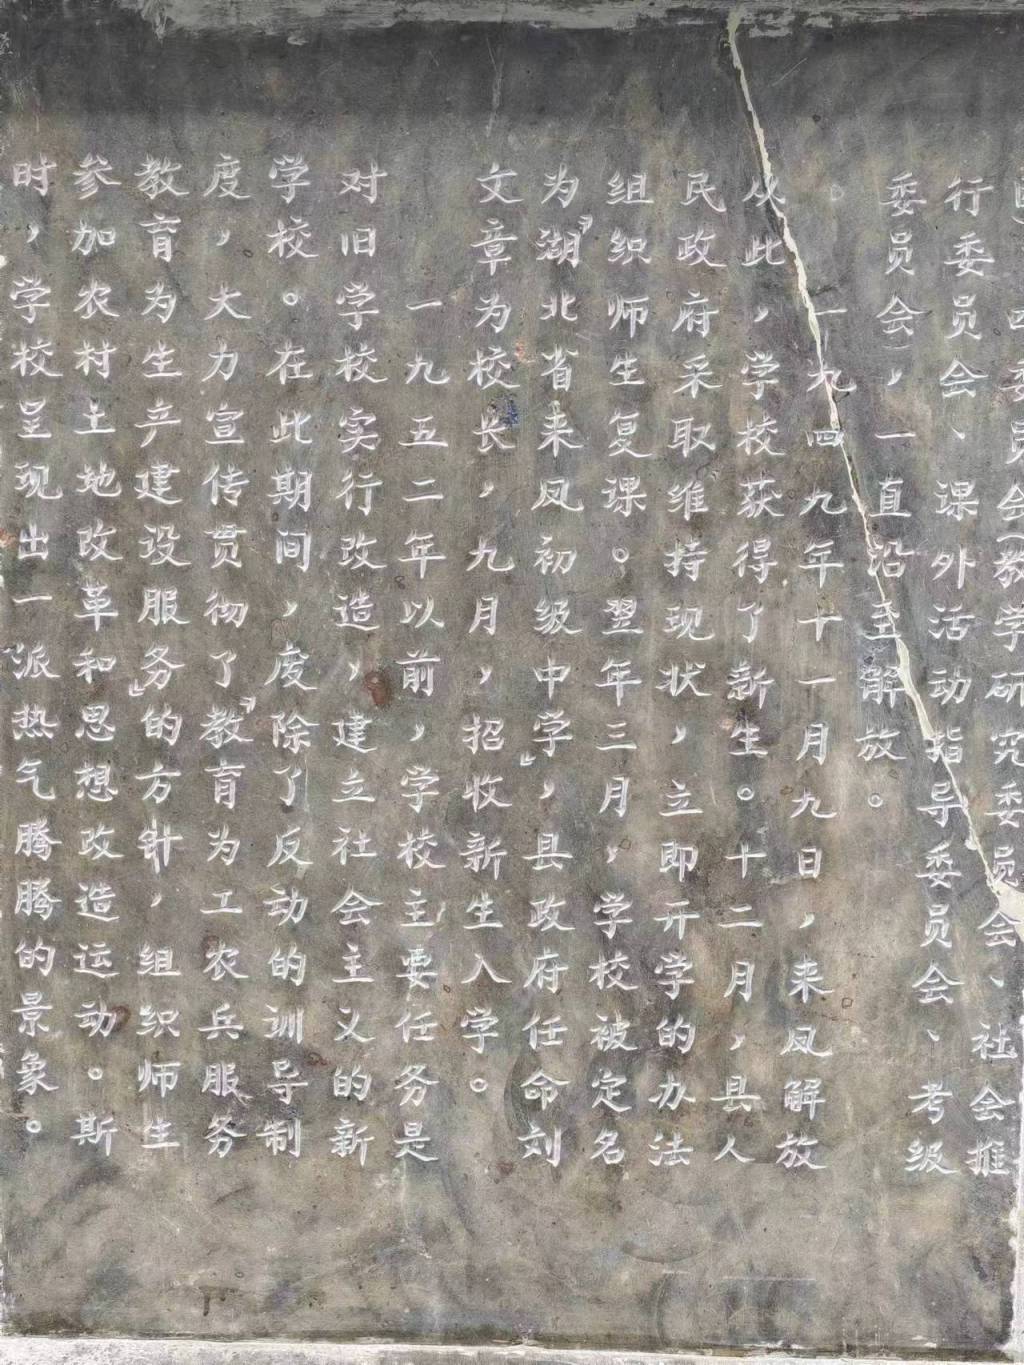 委员会(教学研究委员会、社会推
行委员会、课外活动指导委员会、考级
委员会),一直沿至解放。
一九四九年十一月九日,来凤解放
。
从此,学校获得了新生。十二月,县人
民政府采取维持现状,立即开学的办法
组织师生复课。翌年三月,学校被定名
为“湖北省来凤初级中学”,县政府任命刘
文章为校长,九月,招收新生入学。
一九五二年以前,学校主要任务是
对旧学校实行改造,建立社会主义的新
学校。在此期间,废除了反动的训导制
度,大力宣传贯彻了“教育为工农兵服务
教育为生产建设服务”的方针,组织师生
参加农村土地改革和思想改造运动。斯
时,学校呈现出一派热气腾腾的景象。